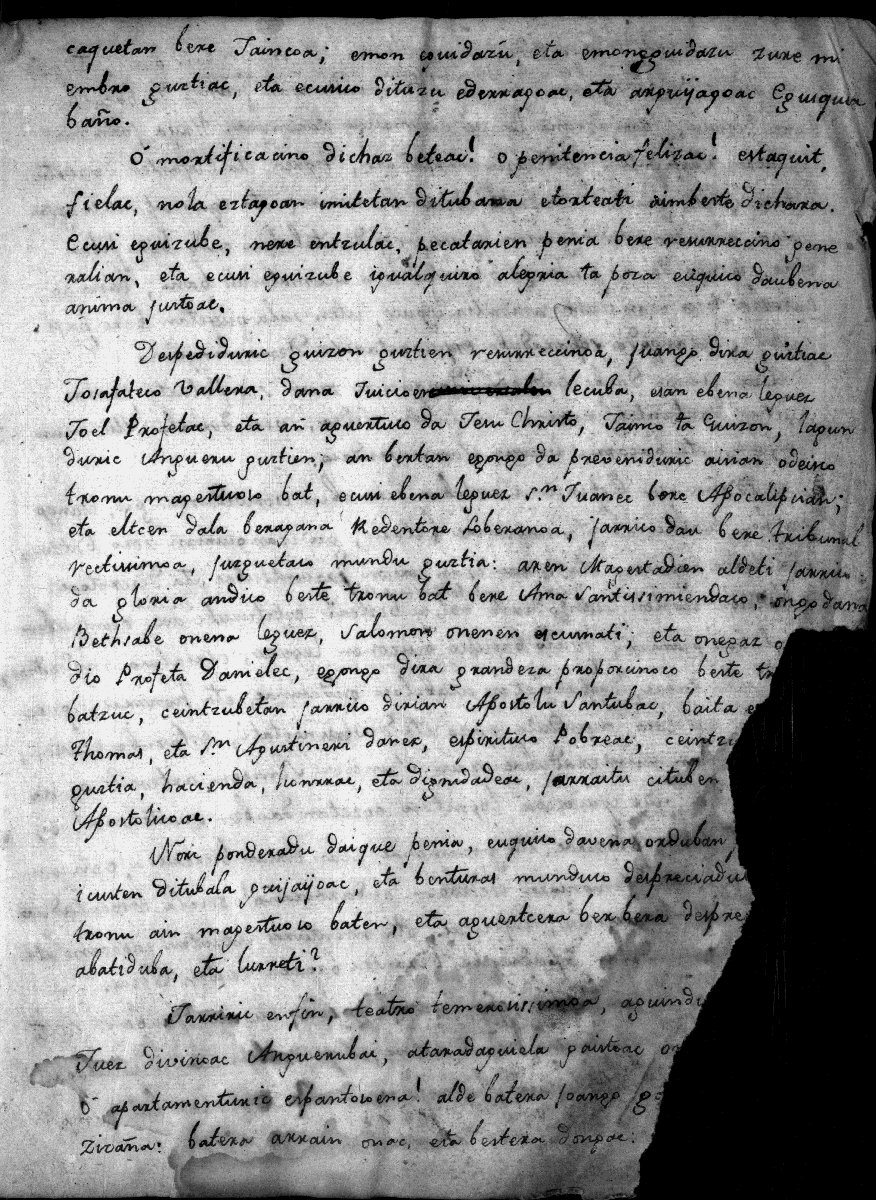 caquetan bere Taincoa; emon çouidazũ, eta emongguidazu zure mi
embro guztiac, eta ecusico dituzu ederragoac, eta arguijagoac Eguiquia
baño.
O mortificacino dichaz beteac! o penitencia felizac! estaquit,
fielac, nola eztagoan imitetan ditubana etorteati aimberte dichara.
Ecusi eguizube, nere entzulac, pecatarien penia bere resurreccino gene
ralian, eta ecusi eguizube igualquiro alegria ta poza euquico daubena
anima justoac.
Despediduric guizon guztien resurreccinoa, juango dira guztiac
Josafateco Vallera, dana Juicioen lecuba, esan ebena leguez
Joel Profetac, eta an aguertuco da Jesu Christo, Jainco ta Guizon, lagun
duric Angueru guztien, an bertan egongo da preveniduric airian odeizco
tronu magestuoso bat, ecusi ebena leguez Sn Juanec bere Apocalipcian;
eta eltcen dala beragana Redentore Soberanoa, jarrico dau bere tribunal
rectisimoa, juzguetaco mundu guztia: aren Magestadien aldeti jarrico
da gloria andico berte tronu bat bere Ama Santissimiendaco, ongo dana
Bethsabe onena leguez, Salomon onenen escumati; eta onegaz
dio Profeta Danielec, egongo dira grandeza proporcinoco berte
batzuc, ceintzubetan jarrico dirian Apostolu Santubac, baita
Thomas, eta Sn Agustineri danez, espirituco Pobreac,
guztia, hacienda, hunrrac, eta dignidadeac, jarraitu cituben
Apostolicoac.
Nori ponderadu daique penia, euquico davena orduban,
icusten ditubala guijaijoac, eta benturas munduco
tronu ain magestuoso baten, eta aguertcera ber bera
abatiduba, eta lurreti?
Jarriric enfin, teatro temerosissimoa,
Juez divinoac Anguerubai, ataradaguiela gaistoac
O apartamenturic espantosoena! alde batera joango
zizaña: batera arrain onac, eta bestera dongac: